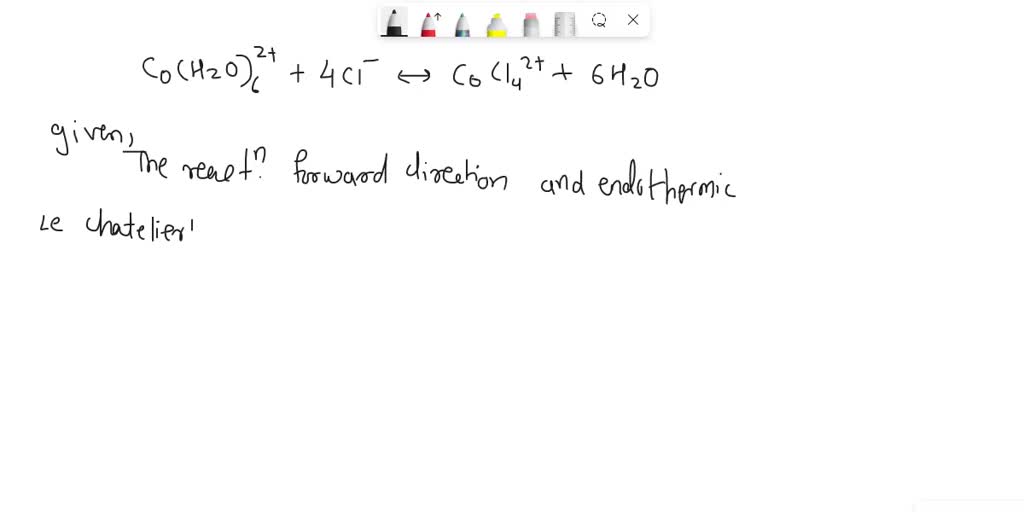 Co(H2O)6^2+ + 4Cl^- ↔ CoCl4^2+ + 6H2O
given,
The react^n. forward direction and endothermic
Le chatelier'